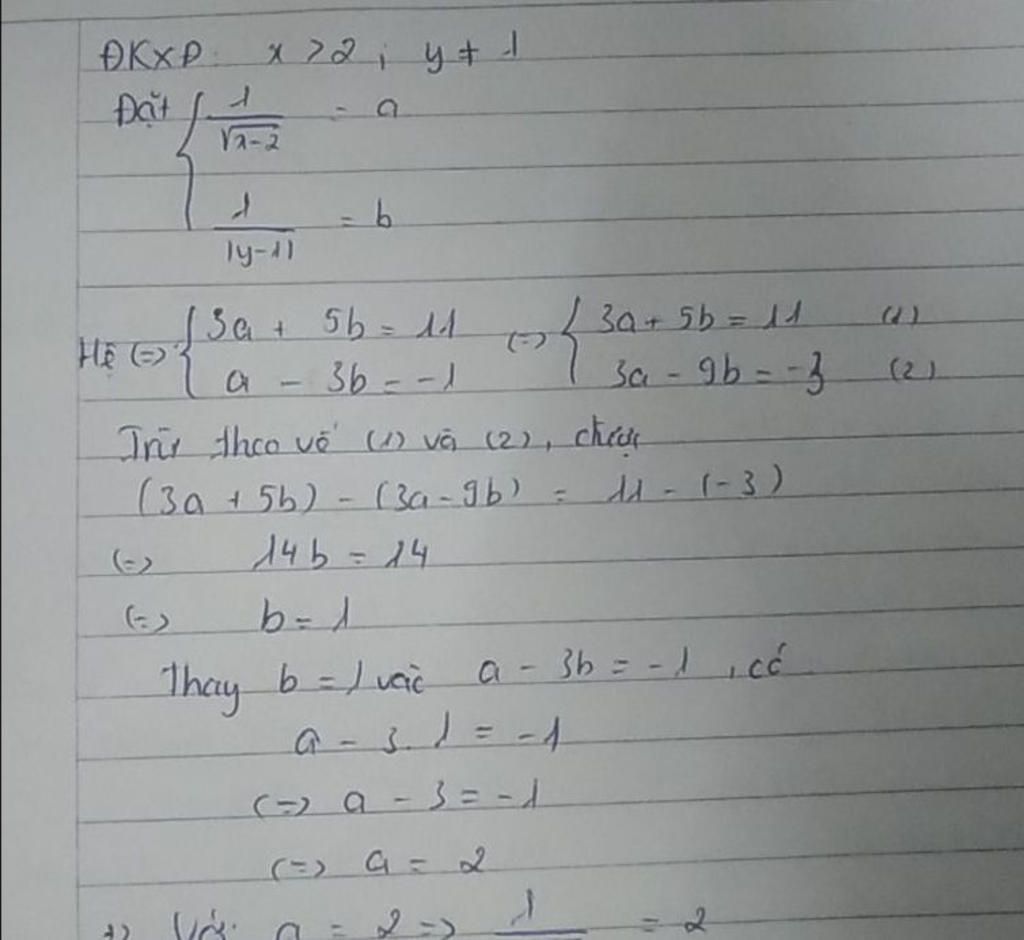 ĐKXĐ: x > 2 ; y ≠ 1
Đặt { 1/√(x-2) = a
1/|y-1| = b
Hệ (=> { 3a + 5b = 11 (=> { 3a + 5b = 11 (1)
a - 3b = -1 3a - 9b = -3 (2)
Trừ theo vế (1) và (2), được
(3a + 5b) - (3a - 9b) = 11 - (-3)
(=> 14b = 14
(=> b = 1
Thay b = 1 vào a - 3b = -1 , có
a - 3. 1 = -1
(=> a - 3 = -1
(=> a = 2
+) Với a = 2 => 1 = 2